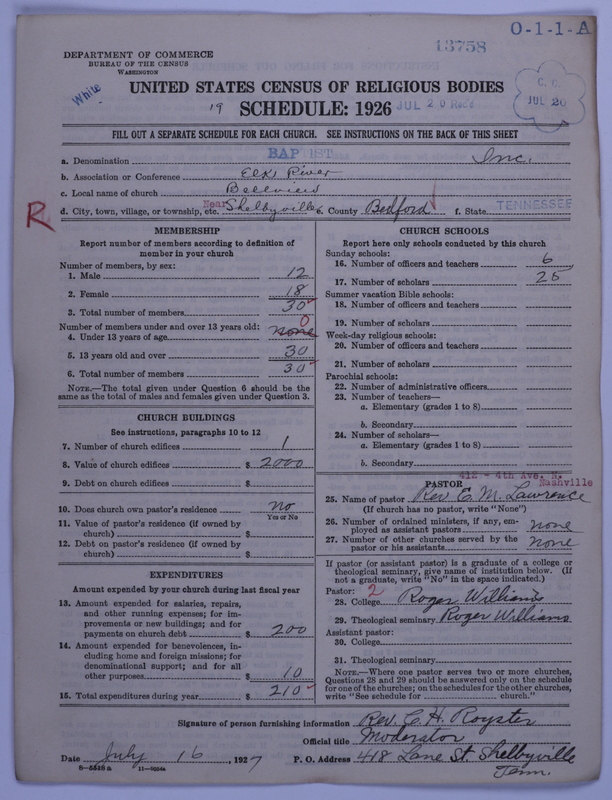 O-1-1-A
13758
DEPARTMENT OF COMMERCE
BUREAU OF THE CENSUS
WASHINGTON
White
UNITED STATES CENSUS OF RELIGIOUS BODIES
19 SCHEDULE: 1926 JUL 20 Rec'd
C. C.
JUL 20
FILL OUT A SEPARATE SCHEDULE FOR EACH CHURCH. SEE INSTRUCTIONS ON THE BACK OF THIS SHEET
a. Denomination BAPTIST Inc.
b. Association or Conference Elk River
c. Local name of church Belleview
d. City, town, village, or township, etc. Near Shelbyville e. County Bedford f. State TENNESSEE
R
MEMBERSHIP
Report number of members according to definition of
member in your church
Number of members, by sex:
1. Male 12
2. Female 18
3. Total number of members 30
Number of members under and over 13 years old: 0
4. Under 13 years of age none
5. 13 years old and over 30
6. Total number of members 30
NOTE.—The total given under Question 6 should be the
same as the total of males and females given under Question 3.
CHURCH BUILDINGS
See instructions, paragraphs 10 to 12
7. Number of church edifices 1
8. Value of church edifices $ 2000
9. Debt on church edifices $
10. Does church own pastor's residence no
Yes or No
11. Value of pastor's residence (if owned by
church) $
12. Debt on pastor's residence (if owned by
church) $
EXPENDITURES
Amount expended by your church during last fiscal year
13. Amount expended for salaries, repairs,
and other running expenses; for im-
provements or new buildings; and for
payments on church debt $ 200
14. Amount expended for benevolences, in-
cluding home and foreign missions; for
denominational support; and for all
other purposes $ 10
15. Total expenditures during year $ 210
CHURCH SCHOOLS
Report here only schools conducted by this church
Sunday schools:
16. Number of officers and teachers 6
17. Number of scholars 25
Summer vacation Bible schools:
18. Number of officers and teachers
19. Number of scholars
Week-day religious schools:
20. Number of officers and teachers
21. Number of scholars
Parochial schools:
22. Number of administrative officers
23. Number of teachers—
a. Elementary (grades 1 to 8)
b. Secondary
24. Number of scholars—
a. Elementary (grades 1 to 8)
b. Secondary
PASTOR 412 - 4th Ave. N.
Nashville
25. Name of pastor Rev. E. M. Lawrence
(If church has no pastor, write "None")
26. Number of ordained ministers, if any, em-
ployed as assistant pastors none
27. Number of other churches served by the
pastor or his assistants none
If pastor (or assistant pastor) is a graduate of a college or
theological seminary, give name of institution below. (If
not a graduate, write "No" in the space indicated.)
Pastor: 2
28. College Roger Williams
29. Theological seminary Roger Williams
Assistant pastor:
30. College
31. Theological seminary
NOTE.—Where one pastor serves two or more churches,
Questions 28 and 29 should be answered only on the schedule
for one of the churches; on the schedules for the other churches,
write "See schedule for church."
Signature of person furnishing information Rev. C. H. Royster
Official title Moderator
Date July 16, 1927 P. O. Address 418 Lane St. Shelbyville
Tenn.
8—5516a 11—9894a